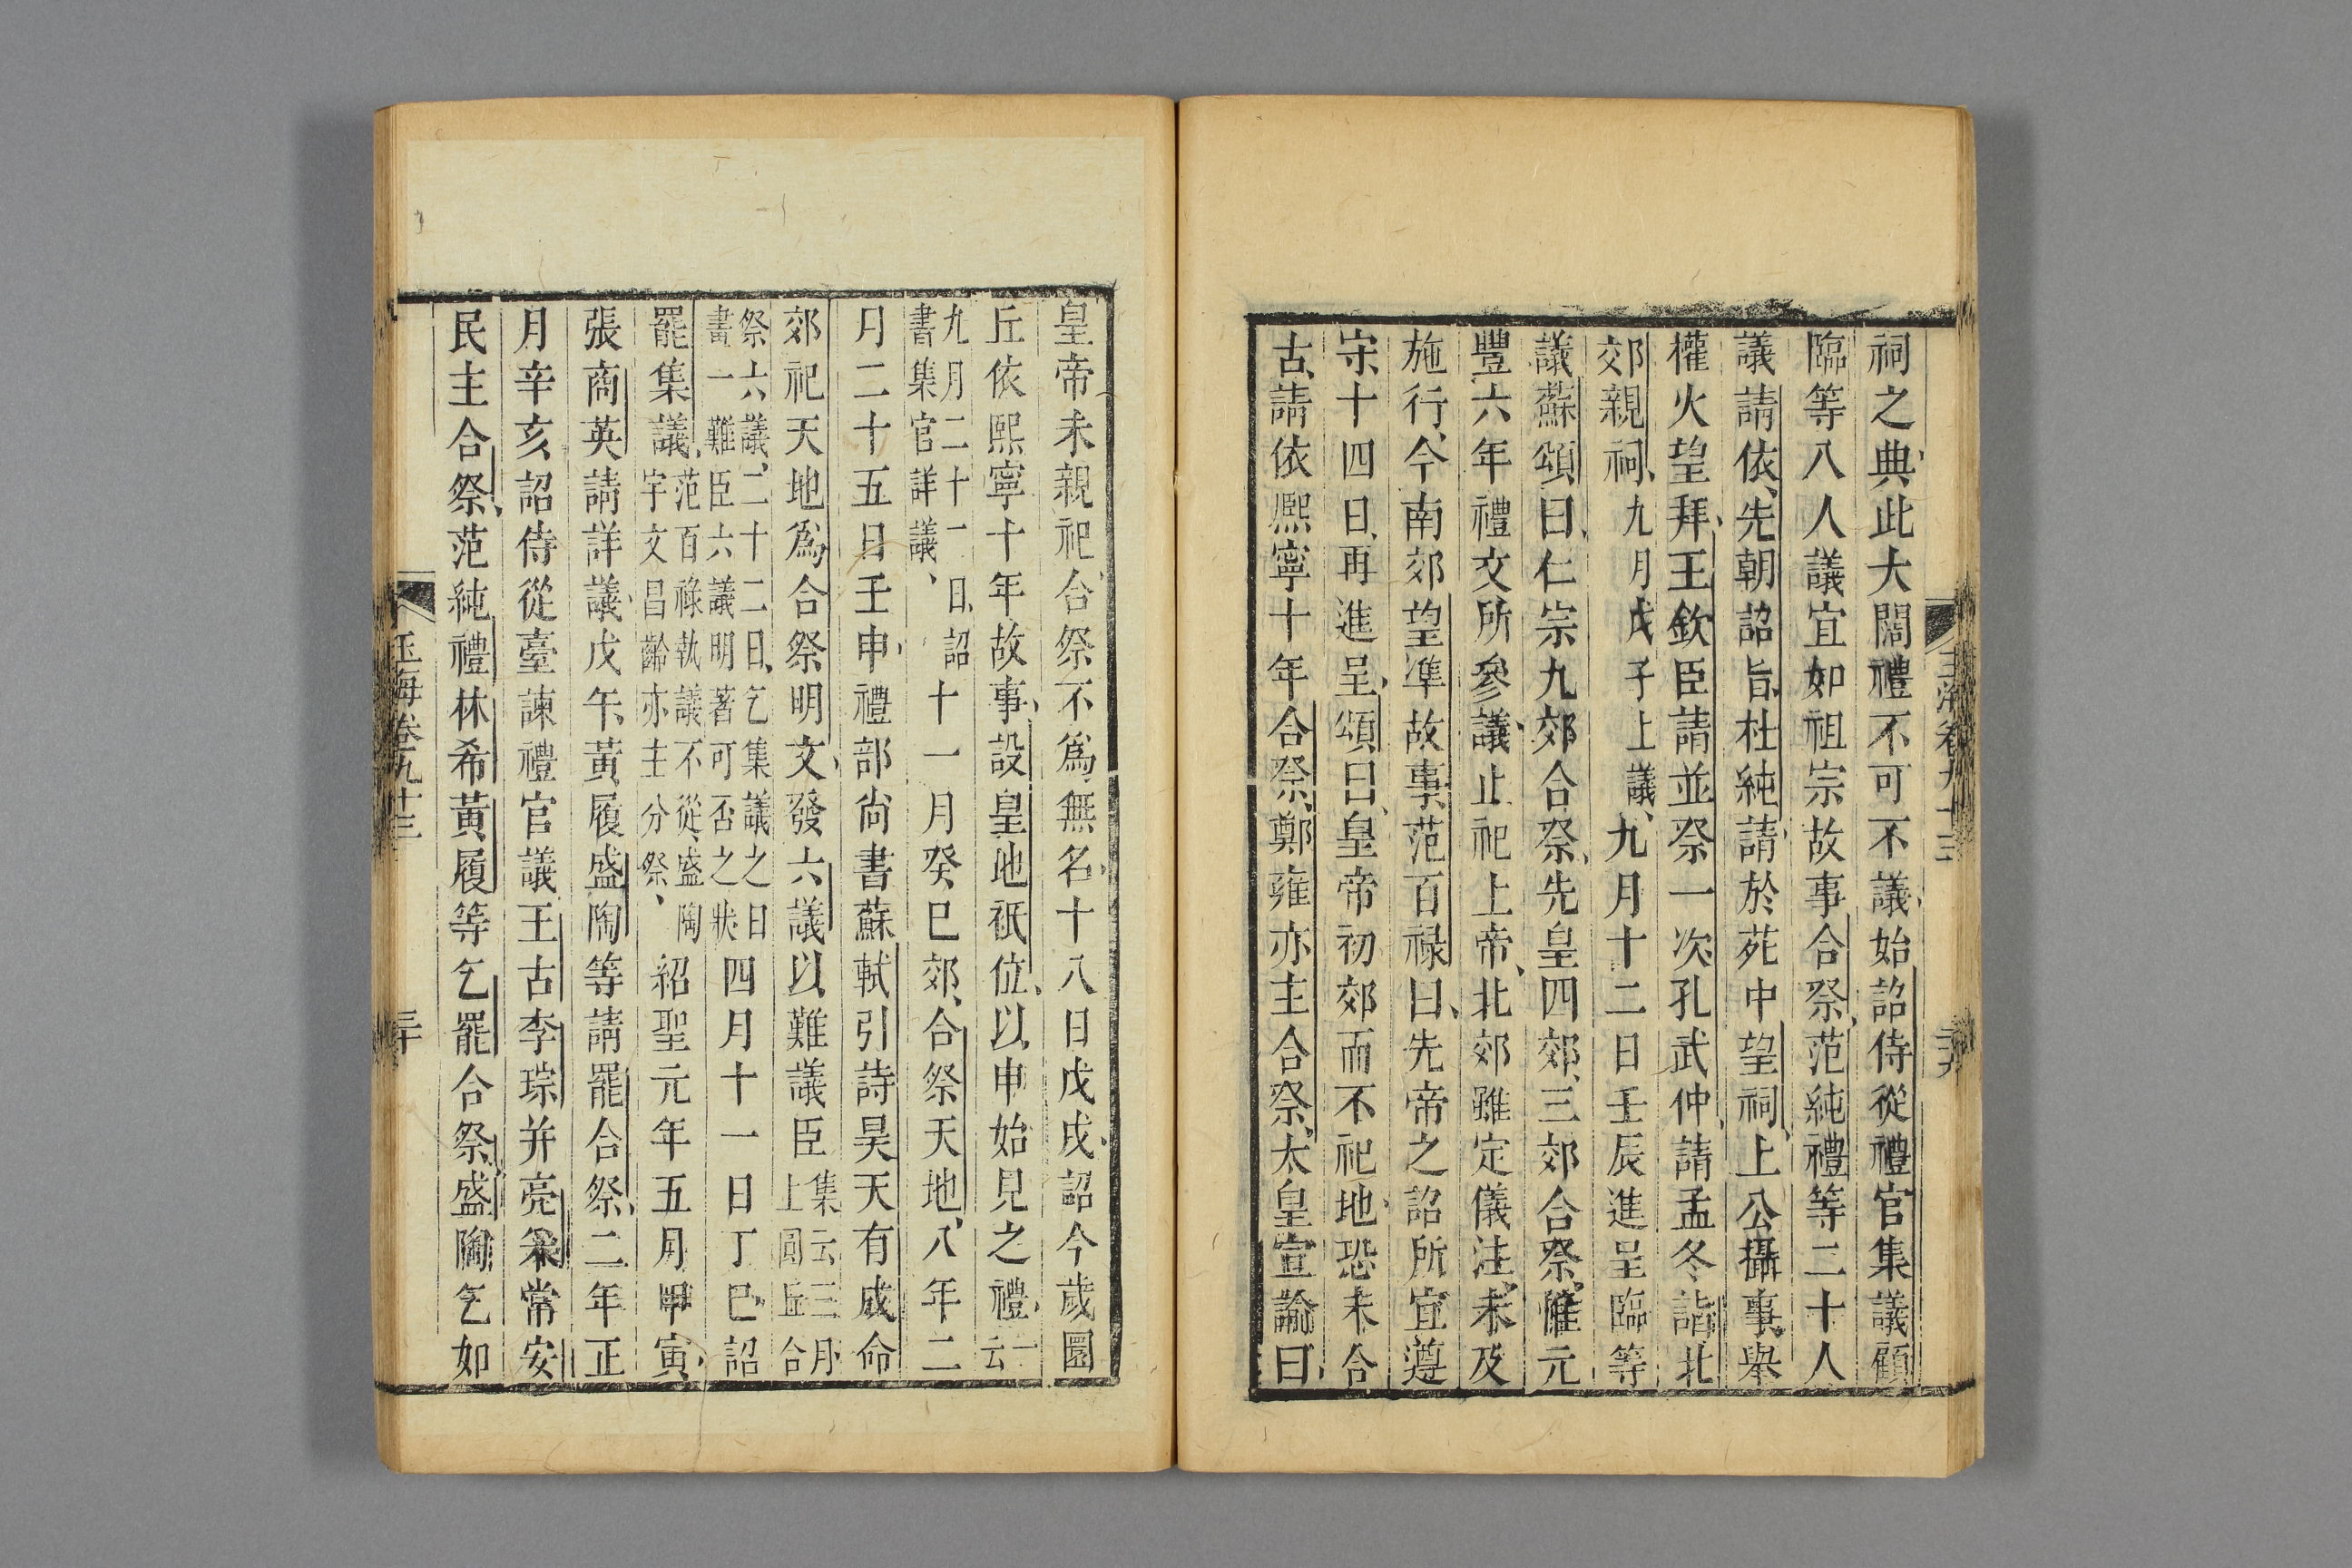 祠之典此大闕禮不可不議始詔侍從禮官集議顧
臨等八人議宜如祖宗故事合祭范純禮等二十人
議請依先朝詔旨杜純請於苑中望祠上公攝事舉
權火望拜王欽臣請並祭一次孔武仲請孟冬詣北
郊親祠九月戊子上議九月十二日壬辰進呈臨等
議蘇頌曰仁宗九郊合祭先皇四郊三郊合祭惟元
豐六年禮文所參議止祀上帝北郊雖定儀注未及
施行今南郊望準故事范百祿曰先帝之詔所宜遵
守十四日再進呈頌曰皇帝初郊而不祀地恐未合
古請依熙寧十年合祭鄭雍亦主合祭太皇宣諭曰
皇帝未親祀合祭不為無名十八日戊戌詔今歲圜
丘依熙寧十年故事設皇地祇位以申始見之禮一云
九月二十一日詔
書集官詳議
十一月癸巳郊合祭天地八年二
月二十五日壬申禮部尚書蘇軾引詩昊天有成命
郊祀天地為合祭明文發六議以難議臣
集云三月
上圓丘合
祭六議二十二日乞集議之日
畫一難臣六議明著可否之狀
四月十一日丁巳詔
罷集議
范百祿執議不從盛陶
宇文昌齡亦主分祭
紹聖元年五月甲寅
張商英請詳議戊午黃履盛陶等請罷合祭二年正
月辛亥詔侍從臺諫禮官議王古李琮并亮采常安
民主合祭范純禮林希黃履等乞罷合祭盛陶乞如
玉海卷九十三
三十